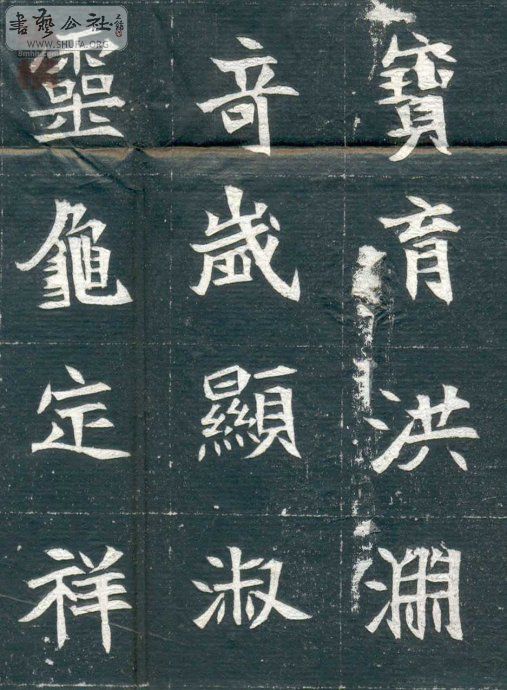 寶育洪淵
竒歲顯淑
靈龜定祥
書藝公社
WWW.SHUFA.ORG